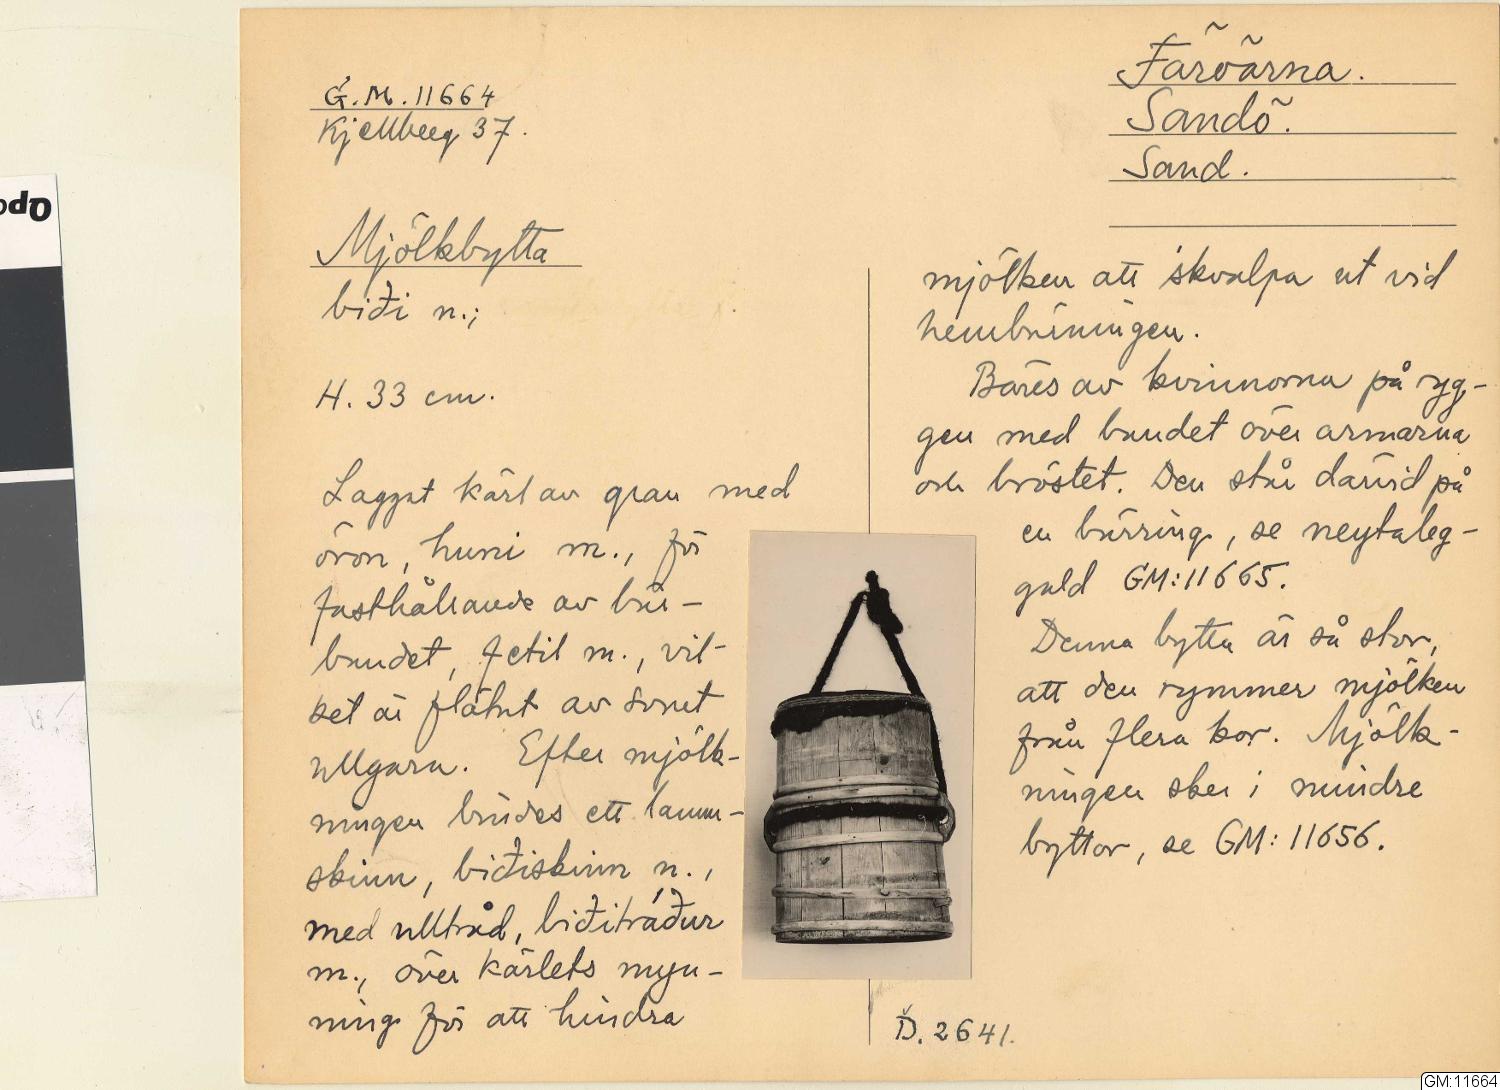 G.M. 11664
Kjellberg 37.
Färöarna.
Sandö.
Sand.
Mjölkbytta
biði n.;
H. 33 cm.
Laggat kärl av gran med
öron, huni m., för
fasthållande av bär-
bandet, fetil m., vil-
ket är flätat av svart
ullgarn. Efter mjölk-
ningen bindes ett lamm-
skinn, biðiskinn n.,
med ulltråd, biðitráður
m., över kärlets myn-
ning för att hindra
mjölken att skvalpa ut vid
hembäringen.
Bäres av kvinnorna på ryg-
gen med bandet över armarna
och bröstet. Den står därvid på
en bärring, se neytaleg-
gald GM:11665.
Denna bytta är så stor,
att den rymmer mjölken
från flera kor. Mjölk-
ningen sker i mindre
byttor, se GM:11656.
D. 2641.
GM:11664